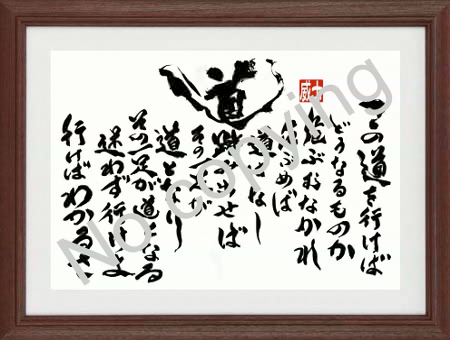 道
この道を行けば
どうなるものか
危ぶむなかれ
危ぶめば
道はなし
踏み出せば
その一 が
道となり
その一足が道になる
迷わず行けよ
行けばわかるさ
No copying